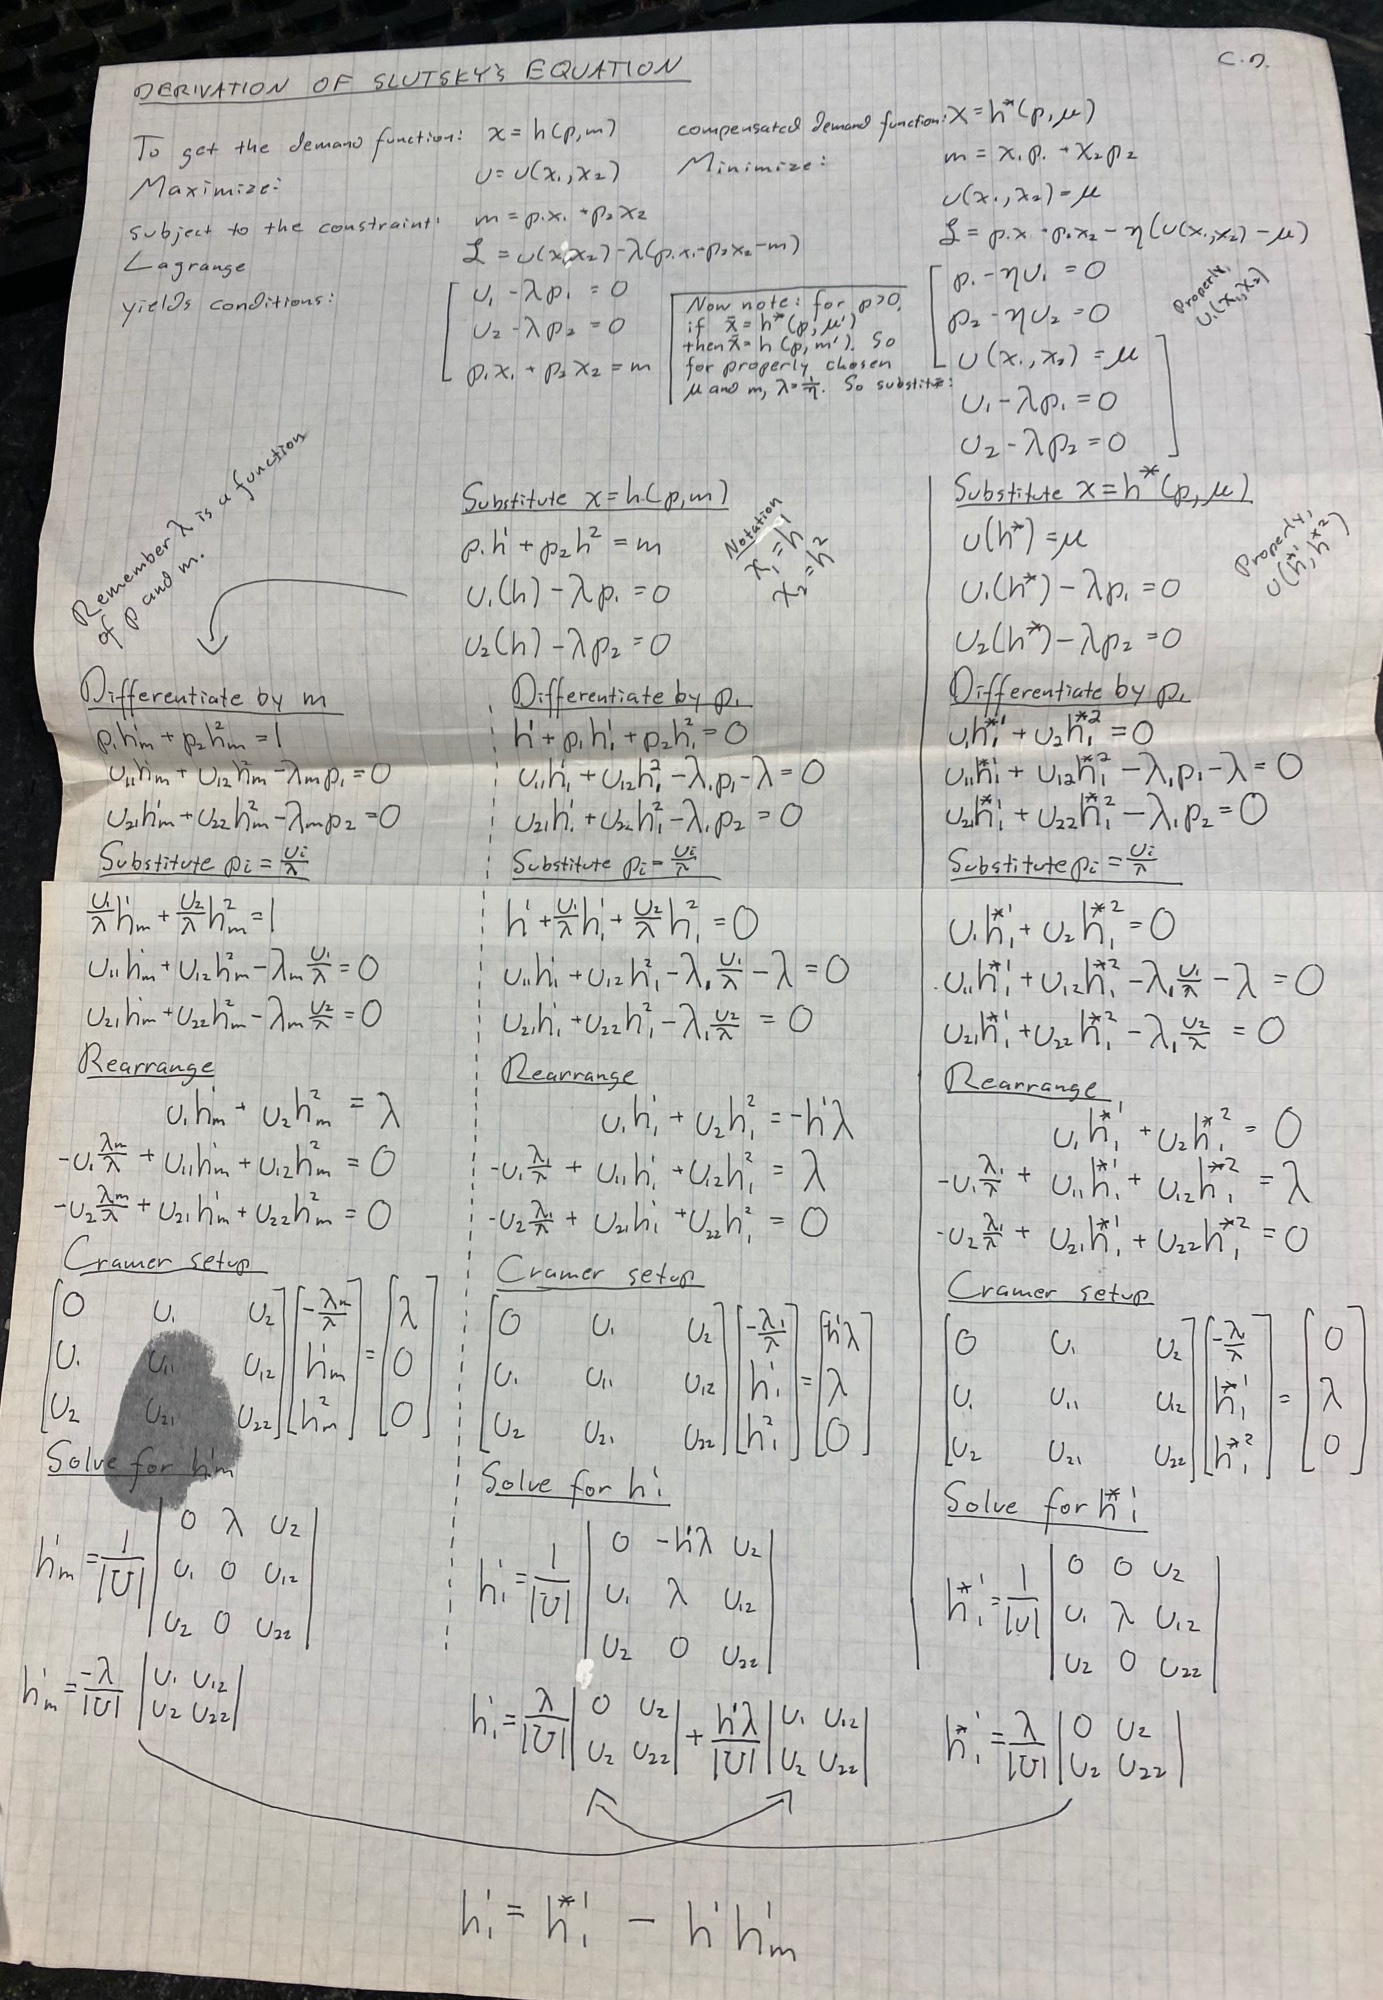 DERIVATION OF SLUTSKY'S EQUATION
C.D.
To get the demand function: x = h(p,m)
Maximize: U = U(x₁,x₂)
subject to the constraint: m = p₁x₁ + p₂x₂
Lagrange ℒ = U(x₁,x₂) - λ(p₁x₁ + p₂x₂ - m)
yields conditions: U₁ - λp₁ = 0
U₂ - λp₂ = 0
p₁x₁ + p₂x₂ = m
Now note: for p>0,
if x̄ = h*(p,μ')
then x̄ = h(p,m'). So
for properly chosen
μ and m, λ = 1/η. So substitute:
compensated demand function: x = h*(p,μ)
Minimize: m = x₁p₁ + x₂p₂
U(x₁,x₂) = μ
ℒ = p₁x₁ + p₂x₂ - η(U(x₁,x₂) - μ)
p₁ - ηU₁ = 0
p₂ - ηU₂ = 0
U(x₁,x₂) = μ
U₁ - λp₁ = 0
U₂ - λp₂ = 0
Properly,
U₁(x₁,x₂)
Remember λ is a function
of p and m.
Substitute x = h(p,m)
p₁h¹ + p₂h² = m
U₁(h) - λp₁ = 0
U₂(h) - λp₂ = 0
Notation
x₁ = h¹
x₂ = h²
Substitute x = h*(p,μ)
U(h*) = μ
U₁(h*) - λp₁ = 0
U₂(h*) - λp₂ = 0
Properly,
U(h*¹,h*²)
Differentiate by m
p₁h¹ₘ + p₂h²ₘ = 1
U₁₁h¹ₘ + U₁₂h²ₘ - λₘp₁ = 0
U₂₁h¹ₘ + U₂₂h²ₘ - λₘp₂ = 0
Substitute pᵢ = Uᵢ/λ
U₁/λ h¹ₘ + U₂/λ h²ₘ = 1
U₁₁h¹ₘ + U₁₂h²ₘ - λₘ U₁/λ = 0
U₂₁h¹ₘ + U₂₂h²ₘ - λₘ U₂/λ = 0
Rearrange
U₁h¹ₘ + U₂h²ₘ = λ
-U₁ λₘ/λ + U₁₁h¹ₘ + U₁₂h²ₘ = 0
-U₂ λₘ/λ + U₂₁h¹ₘ + U₂₂h²ₘ = 0
Cramer setup
[0 U₁ U₂] [-λₘ/λ] = [λ]
[U₁ U₁₁ U₁₂] [h¹ₘ] = [0]
[U₂ U₂₁ U₂₂] [h²ₘ] = [0]
Solve for h¹ₘ
h¹ₘ = 1/|U| |0 λ U₂|
|U₁ 0 U₁₂|
|U₂ 0 U₂₂|
h¹ₘ = -λ/|U| |U₁ U₁₂|
|U₂ U₂₂|
Differentiate by p₁
h¹ + p₁h¹₁ + p₂h²₁ = 0
U₁₁h¹₁ + U₁₂h²₁ - λ₁p₁ - λ = 0
U₂₁h¹₁ + U₂₂h²₁ - λ₁p₂ = 0
Substitute pᵢ = Uᵢ/λ
h¹ + U₁/λ h¹₁ + U₂/λ h²₁ = 0
U₁₁h¹₁ + U₁₂h²₁ - λ₁ U₁/λ - λ = 0
U₂₁h¹₁ + U₂₂h²₁ - λ₁ U₂/λ = 0
Rearrange
U₁h¹₁ + U₂h²₁ = -h¹λ
-U₁ λ₁/λ + U₁₁h¹₁ + U₁₂h²₁ = λ
-U₂ λ₁/λ + U₂₁h¹₁ + U₂₂h²₁ = 0
Cramer setup
[0 U₁ U₂] [-λ₁/λ] = [-h¹λ]
[U₁ U₁₁ U₁₂] [h¹₁] = [λ]
[U₂ U₂₁ U₂₂] [h²₁] = [0]
Solve for h¹₁
h¹₁ = 1/|U| |0 -h¹λ U₂|
|U₁ λ U₁₂|
|U₂ 0 U₂₂|
h¹₁ = λ/|U| |0 U₂| + h¹λ/|U| |U₁ U₁₂|
|U₂ U₂₂| |U₂ U₂₂|
Differentiate by p₁
U₁h*¹₁ + U₂h*²₁ = 0
U₁₁h*¹₁ + U₁₂h*²₁ - λ₁p₁ - λ = 0
U₂₁h*¹₁ + U₂₂h*²₁ - λ₁p₂ = 0
Substitute pᵢ = Uᵢ/λ
U₁h*¹₁ + U₂h*²₁ = 0
U₁₁h*¹₁ + U₁₂h*²₁ - λ₁ U₁/λ - λ = 0
U₂₁h*¹₁ + U₂₂h*²₁ - λ₁ U₂/λ = 0
Rearrange
U₁h*¹₁ + U₂h*²₁ = 0
-U₁ λ₁/λ + U₁₁h*¹₁ + U₁₂h*²₁ = λ
-U₂ λ₁/λ + U₂₁h*¹₁ + U₂₂h*²₁ = 0
Cramer setup
[0 U₁ U₂] [-λ₁/λ] = [0]
[U₁ U₁₁ U₁₂] [h*¹₁] = [λ]
[U₂ U₂₁ U₂₂] [h*²₁] = [0]
Solve for h*¹₁
h*¹₁ = 1/|U| |0 0 U₂|
|U₁ λ U₁₂|
|U₂ 0 U₂₂|
h*¹₁ = λ/|U| |0 U₂|
|U₂ U₂₂|
h¹₁ = h*¹₁ - h¹h¹ₘ